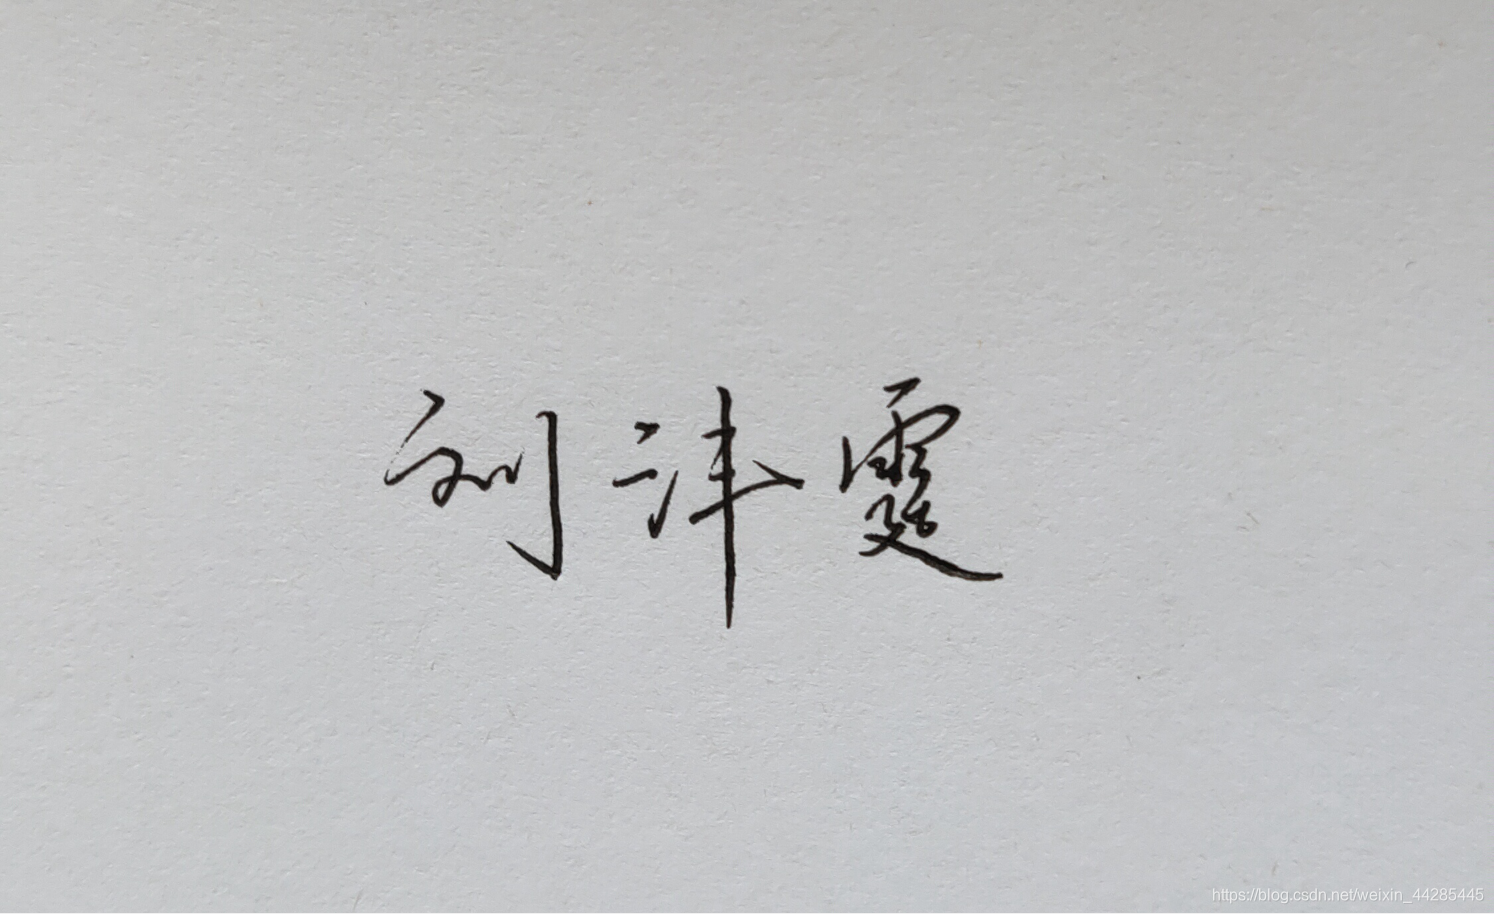 刘沣霆
https://blog.csdn.net/weixin_44285445